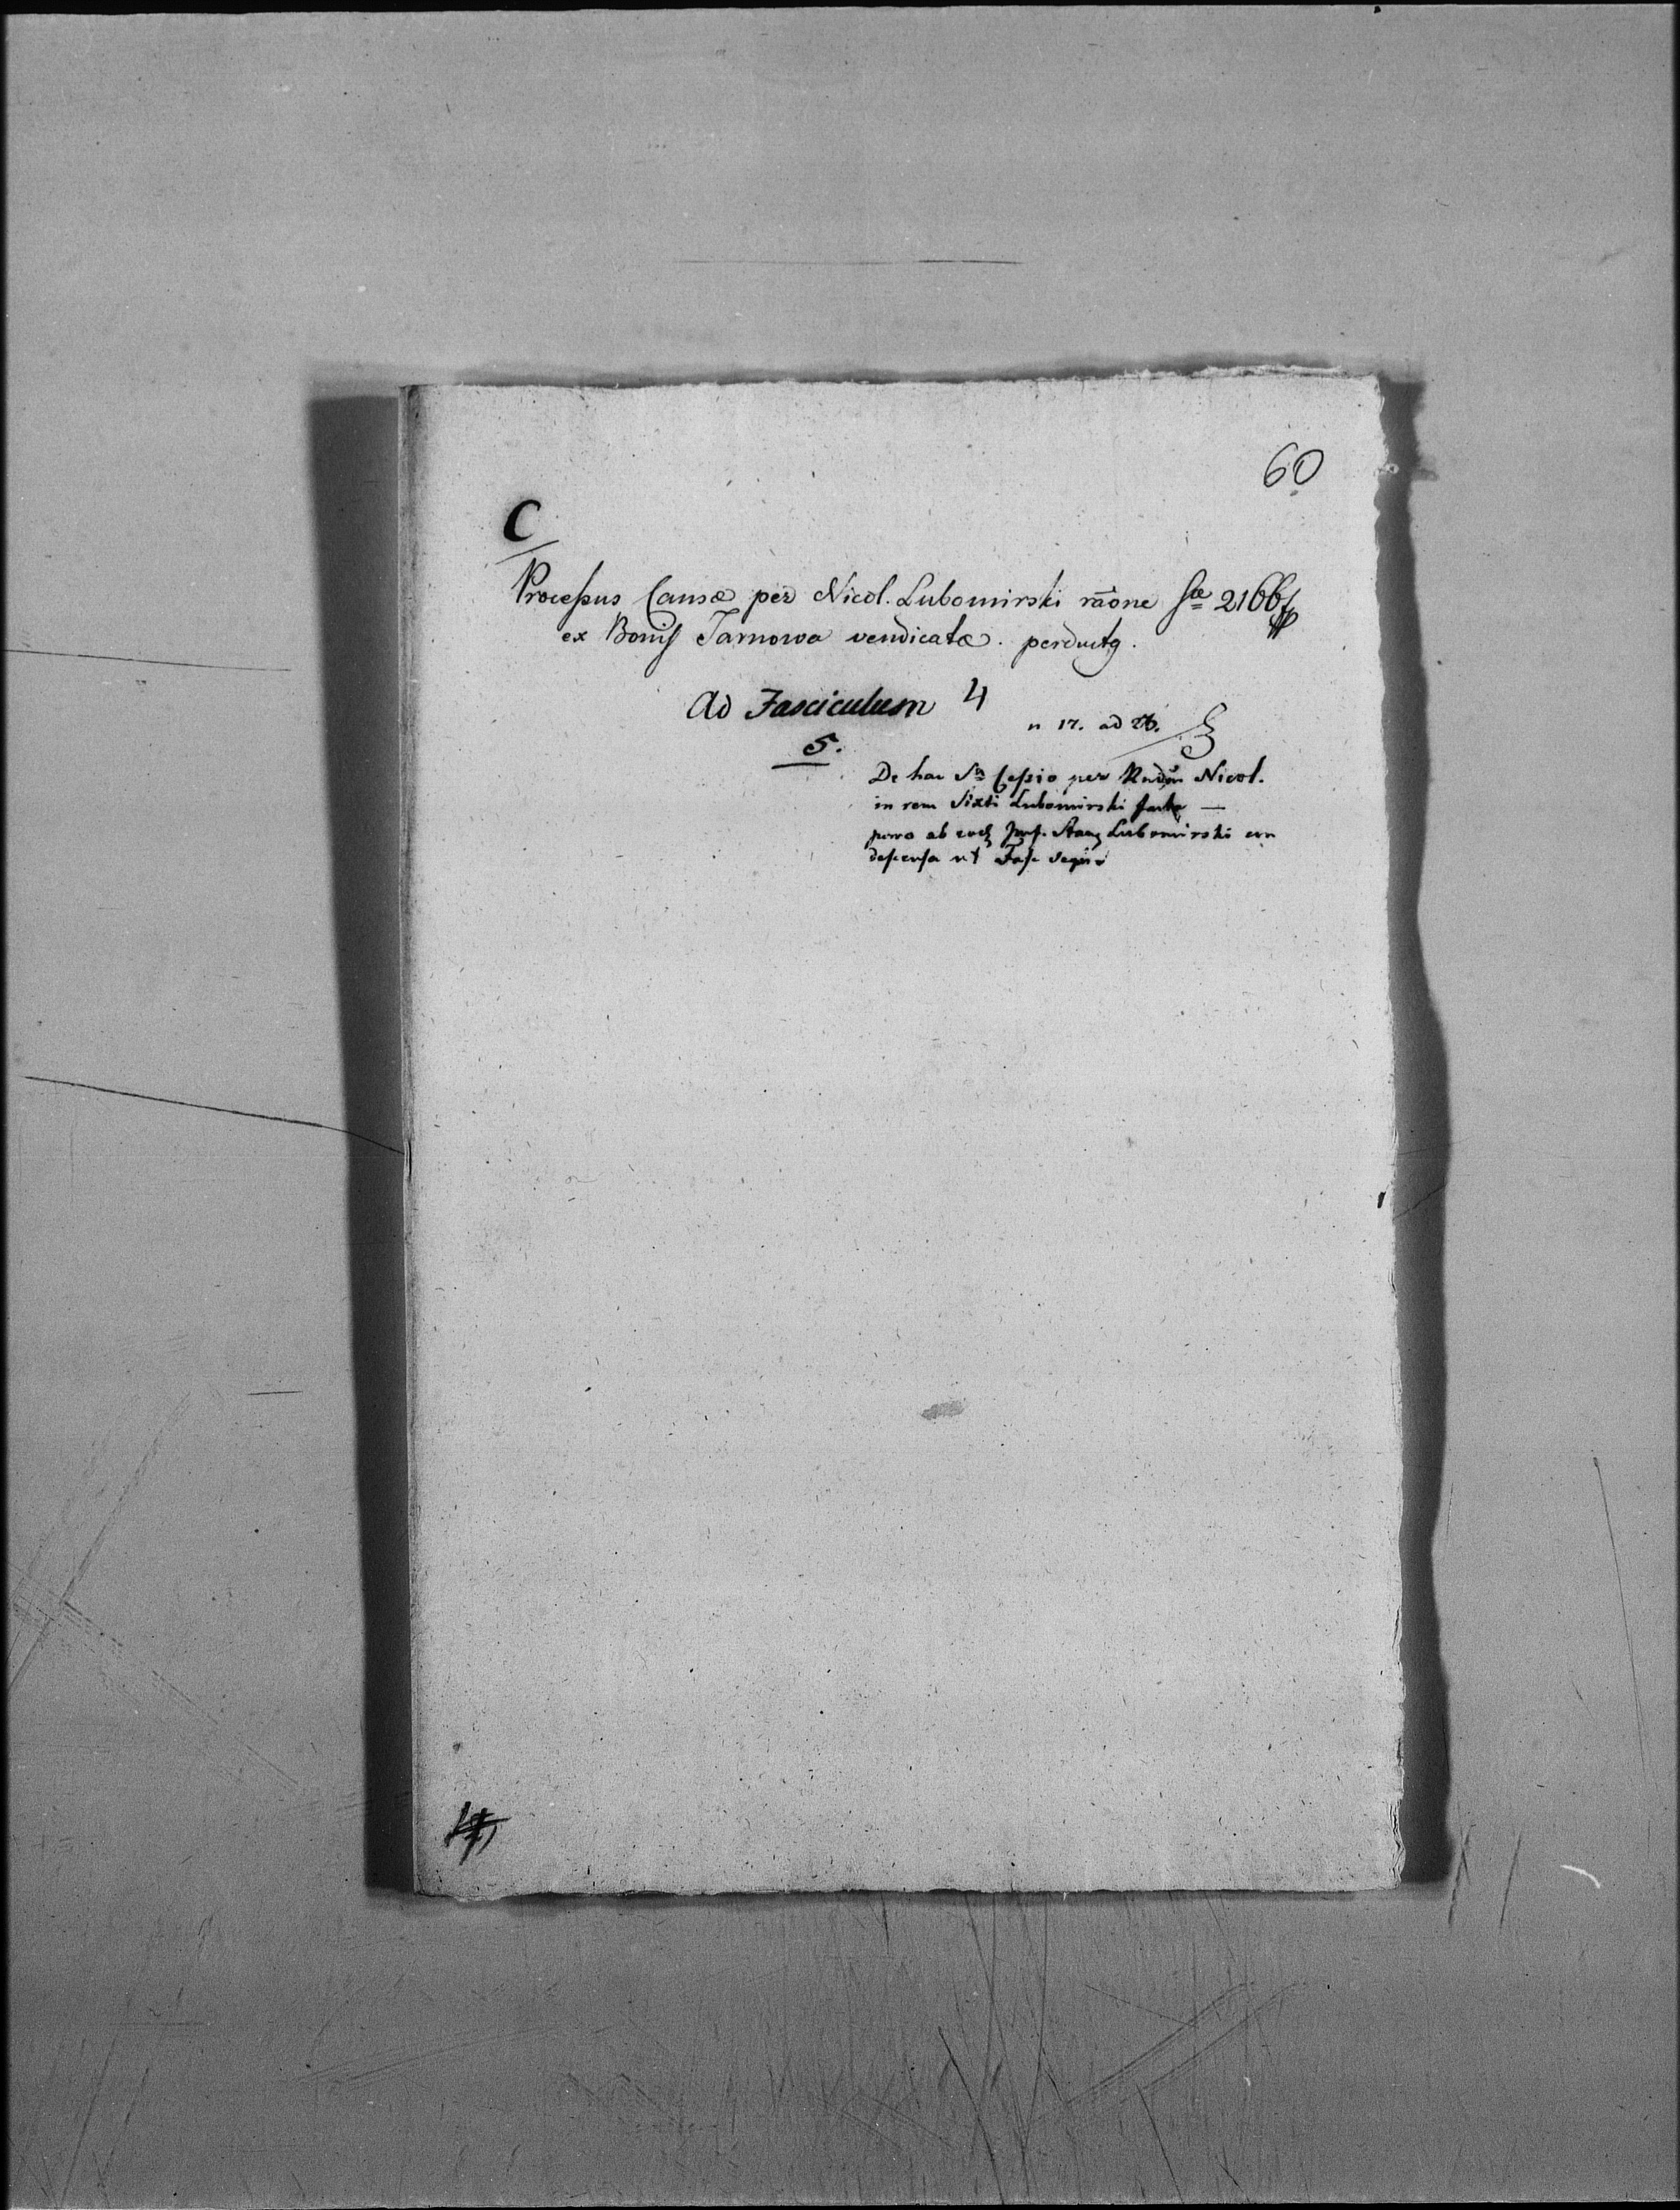 60
C
Processus Causæ per Nicol. Lubomirski raõne Sæ 2166
ex Bonis Tarnowa vendicatæ. perductg.
Ad Fasciculum 4
n 17. ad 26.
5.
De hac Sa Cessio per Nicol.
in rem Sixti Lubomirski facta —
porro ab Lubomirski con
descensa ut Fasc